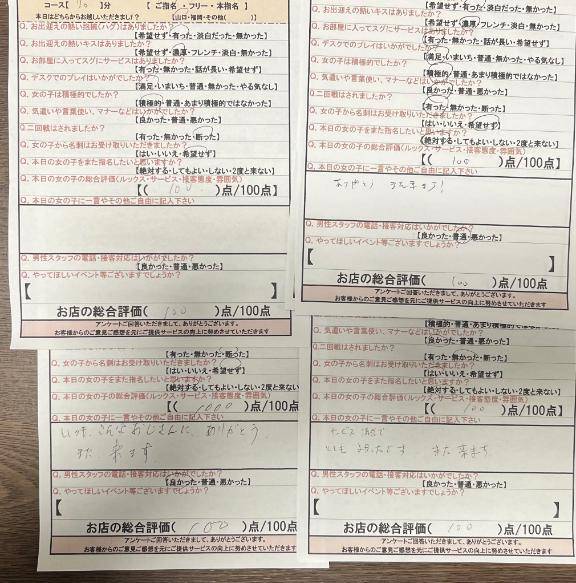 コース【 70 】分 【 ご指名 ・ フリー ・ 本指名 】
本日はどちらからお越しいただきましたか？ 【山口・福岡・その他( )】
Q. お出迎えの熱い抱擁(ハグ)はありましたか？
【希望せず・有った・淡白だった・無かった】
Q. お出迎えの熱いキスはありましたか？
【希望せず・濃厚・フレンチ・淡白・無かった】
Q. お部屋に入ってスグにサービスはありましたか？
【有った・無かった・話が長い・希望せず】
Q. デスクでのプレイはいかがでしたか？
【満足・いまいち・普通・無かった・やる気なし】
Q. 女の子は積極的でしたか？
【積極的・普通・あまり積極的ではなかった】
Q. 気遣いや言葉使い、マナーなどはいかがでしたか？
【良かった・普通・悪かった】
Q. 二回戦はされましたか？
【有った・無かった・断った】
Q. 女の子から名刺はお受け取りいただきましたか？
【はい・いいえ・希望せず】
Q. 本日の女の子をまた指名したいと思いますか？
【絶対する・してもよい・しない・2度と来ない】
Q. 本日の女の子の総合評価(ルックス・サービス・接客態度・雰囲気)
【( 100 )点/100点】
Q. 本日の女の子に一言やその他ご自由に記入下さい
Q. 男性スタッフの電話・接客対応はいかがでしたか？
【良かった・普通・悪かった】
Q. やってほしいイベント等ございますでしょうか？
【 】
お店の総合評価( 100 )点/100点
アンケートご回答いただきまして、ありがとうございます。
お客様からのご意見ご感想を元にご提供サービスの向上に努めさせていただきます
【希望せず・有った・淡白だった・無かった】
Q. お出迎えの熱いキスはありましたか？
【希望せず・濃厚・フレンチ・淡白・無かった】
Q. お部屋に入ってスグにサービスはありましたか？
【有った・無かった・話が長い・希望せず】
Q. デスクでのプレイはいかがでしたか？
【満足・いまいち・普通・無かった・やる気なし】
Q. 女の子は積極的でしたか？
【積極的・普通・あまり積極的ではなかった】
Q. 気遣いや言葉使い、マナーなどはいかがでしたか？
【良かった・普通・悪かった】
Q. 二回戦はされましたか？
【有った・無かった・断った】
Q. 女の子から名刺はお受け取りいただきましたか？
【はい・いいえ・希望せず】
Q. 本日の女の子をまた指名したいと思いますか？
【絶対する・してもよい・しない・2度と来ない】
Q. 本日の女の子の総合評価(ルックス・サービス・接客態度・雰囲気)
【( 100 )点/100点】
Q. 本日の女の子に一言やその他ご自由に記入下さい
ありがとう また来ます！
Q. 男性スタッフの電話・接客対応はいかがでしたか？
【良かった・普通・悪かった】
Q. やってほしいイベント等ございますでしょうか？
【 】
お店の総合評価( 100 )点/100点
アンケートご回答いただきまして、ありがとうございます。
お客様からのご意見ご感想を元にご提供サービスの向上に努めさせていただきます
【有った・無かった・断った】
Q. 女の子から名刺はお受け取りいただきましたか？
【はい・いいえ・希望せず】
Q. 本日の女の子をまた指名したいと思いますか？
【絶対する・してもよい・しない・2度と来ない】
Q. 本日の女の子の総合評価(ルックス・サービス・接客態度・雰囲気)
【( 1000 )点/100点
Q. 本日の女の子に一言やその他ご自由に記入下さい
いつも、こんなおじさんに、ありがとう
また 来ます
Q. 男性スタッフの電話・接客対応はいかがでしたか？
【良かった・普通・悪かった】
Q. やってほしいイベント等ございますでしょうか？
【
お店の総合評価( 100 )点/100点
アンケートご回答いただきまして、ありがとうございます。
お客様からのご意見ご感想を元にご提供サービスの向上に努めさせていただきます
【積極的・普通・あまり積極的では
Q. 気遣いや言葉使い、マナーなどはいかがでしたか？
【良かった・普通・悪かった】
Q. 二回戦はされましたか？
【有った・無かった・断った】
Q. 女の子から名刺はお受け取りいただきましたか？
【はい・いいえ・希望せず】
Q. 本日の女の子をまた指名したいと思いますか？
【絶対する・してもよい・しない・2度と来ない】
Q. 本日の女の子の総合評価(ルックス・サービス・接客態度・雰囲気)
【( 100 )点/100点】
Q. 本日の女の子に一言やその他ご自由に記入下さい
とても よかったです また 来ます
Q. 男性スタッフの電話・接客対応はいかがでしたか？
【良かった・普通・悪かった】
Q. やってほしいイベント等ございますでしょうか？
【 】
お店の総合評価( 100 )点/100点
アンケートご回答いただきまして、ありがとうございます。
お客様からのご意見ご感想を元にご提供サービスの向上に努めさせていただきます